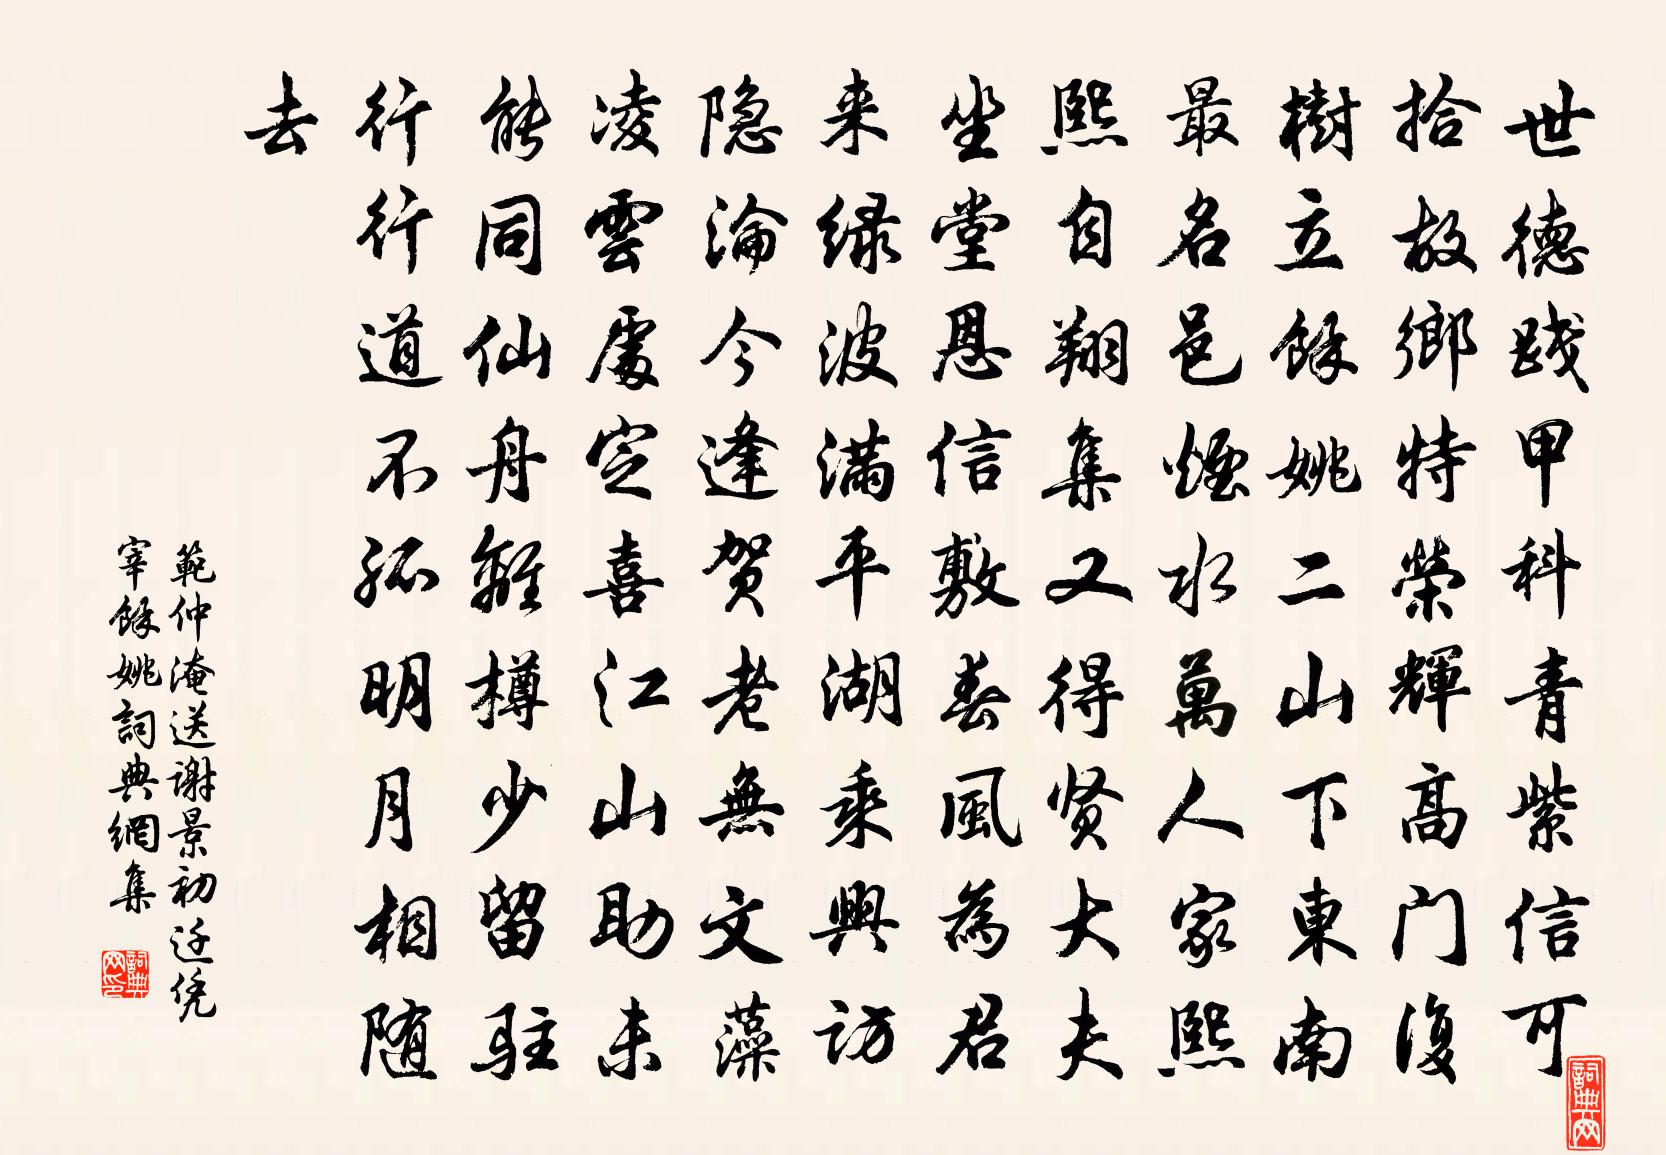 世德践甲科青紫信可
拾故鄉特榮輝高门復
樹立餘姚二山下東南
最名邑煙水萬人家熙
熙自翔集又得贤大夫
坐堂恩信敷春風為君
来绿波满平湖乘興访
隐淪今逢贺老無文藻
凌雲處定喜江山助未
能同仙舟離樽少留駐
行行道不孤明月相随
去
範仲淹送谢景初迁凭
宰餘姚詞典網集
詞典网印
詞典网